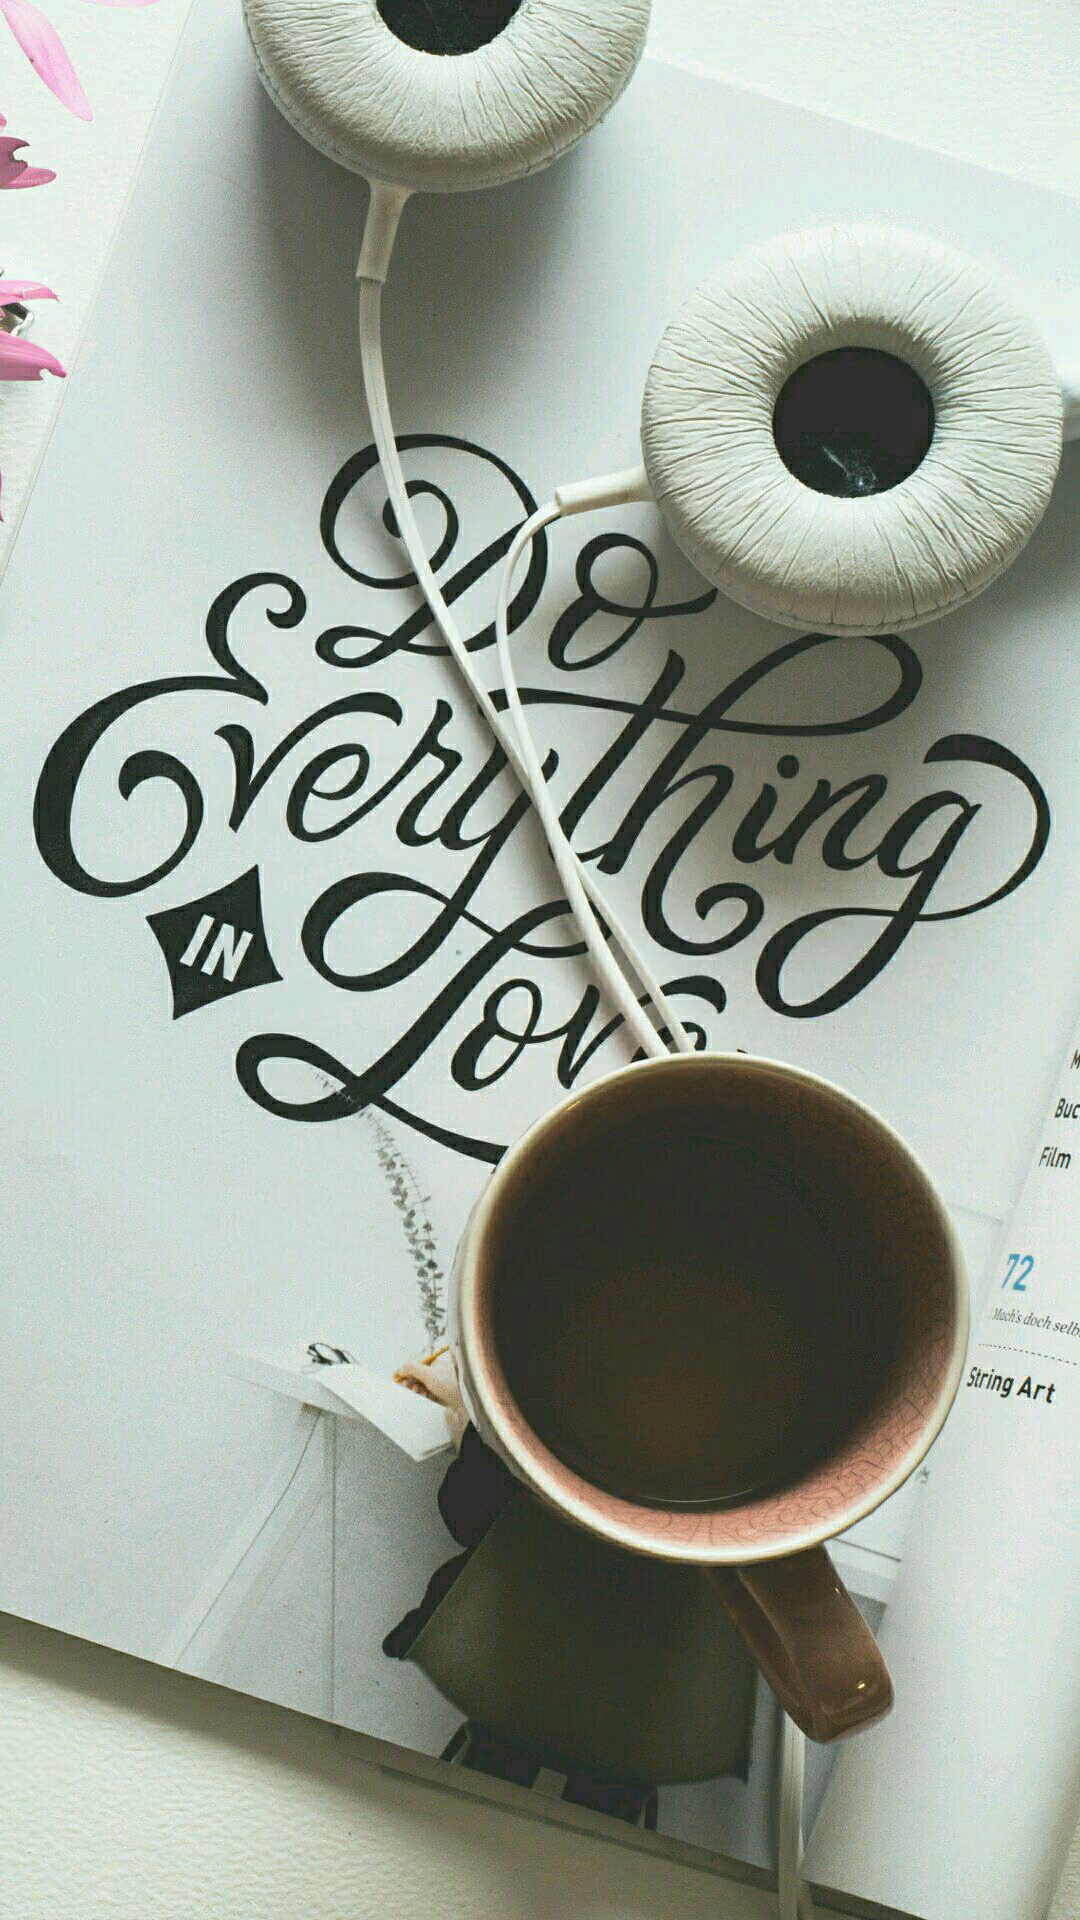 Do
Everything
IN
Love
Film
72
Mach's doch
String Art